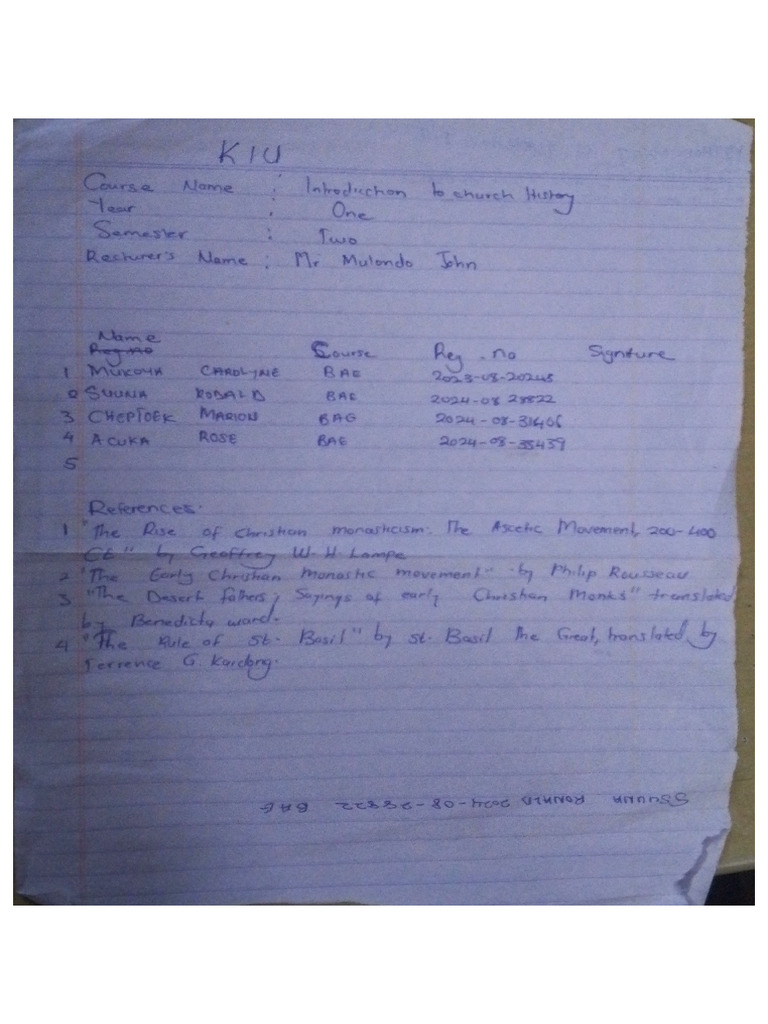 KIU
Course Name : Introduction to church History
Year : One
Semester : Two
Recturer's Name : Mr Mulondo John
Name
Reg no Course Reg . no Signiture
1 MUKOYA CAROLYNE BAE 2023-08-20248
2 SUUNA RODALD BAE 2024-08 28822
3 CHEPTOEK MARION BAE 2024-08-31406
4 ACUKA ROSE BAE 2024-08-35439
5
References.
1 "The Rise of Christian monasticism: The Ascetic Movement, 200-400
CE" by Geoffrey W. H. Lampe
2 "The Early Christian Monastic movement" by Philip Rousseau
3 "The Desert fathers; Sayings of early Christian Monks" translated
by Benedicta ward.
4 "The Rule of St. Basil" by St. Basil the Great, translated by
Terrence G. Kardong.
SSUUNA RONALD 2024-08-28822 BAE